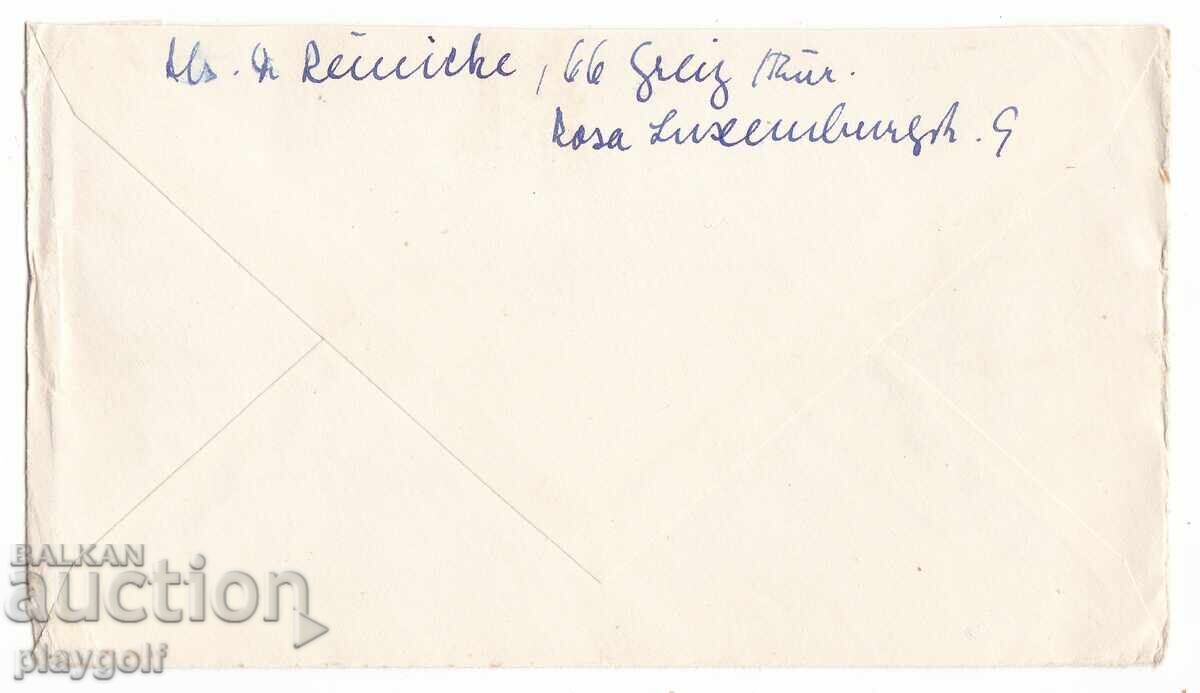 Abs. Dr Reinicke, 66 Greiz /Thür.
Rosa Luxemburgstr. 9
BALKAN
auction
playgolf